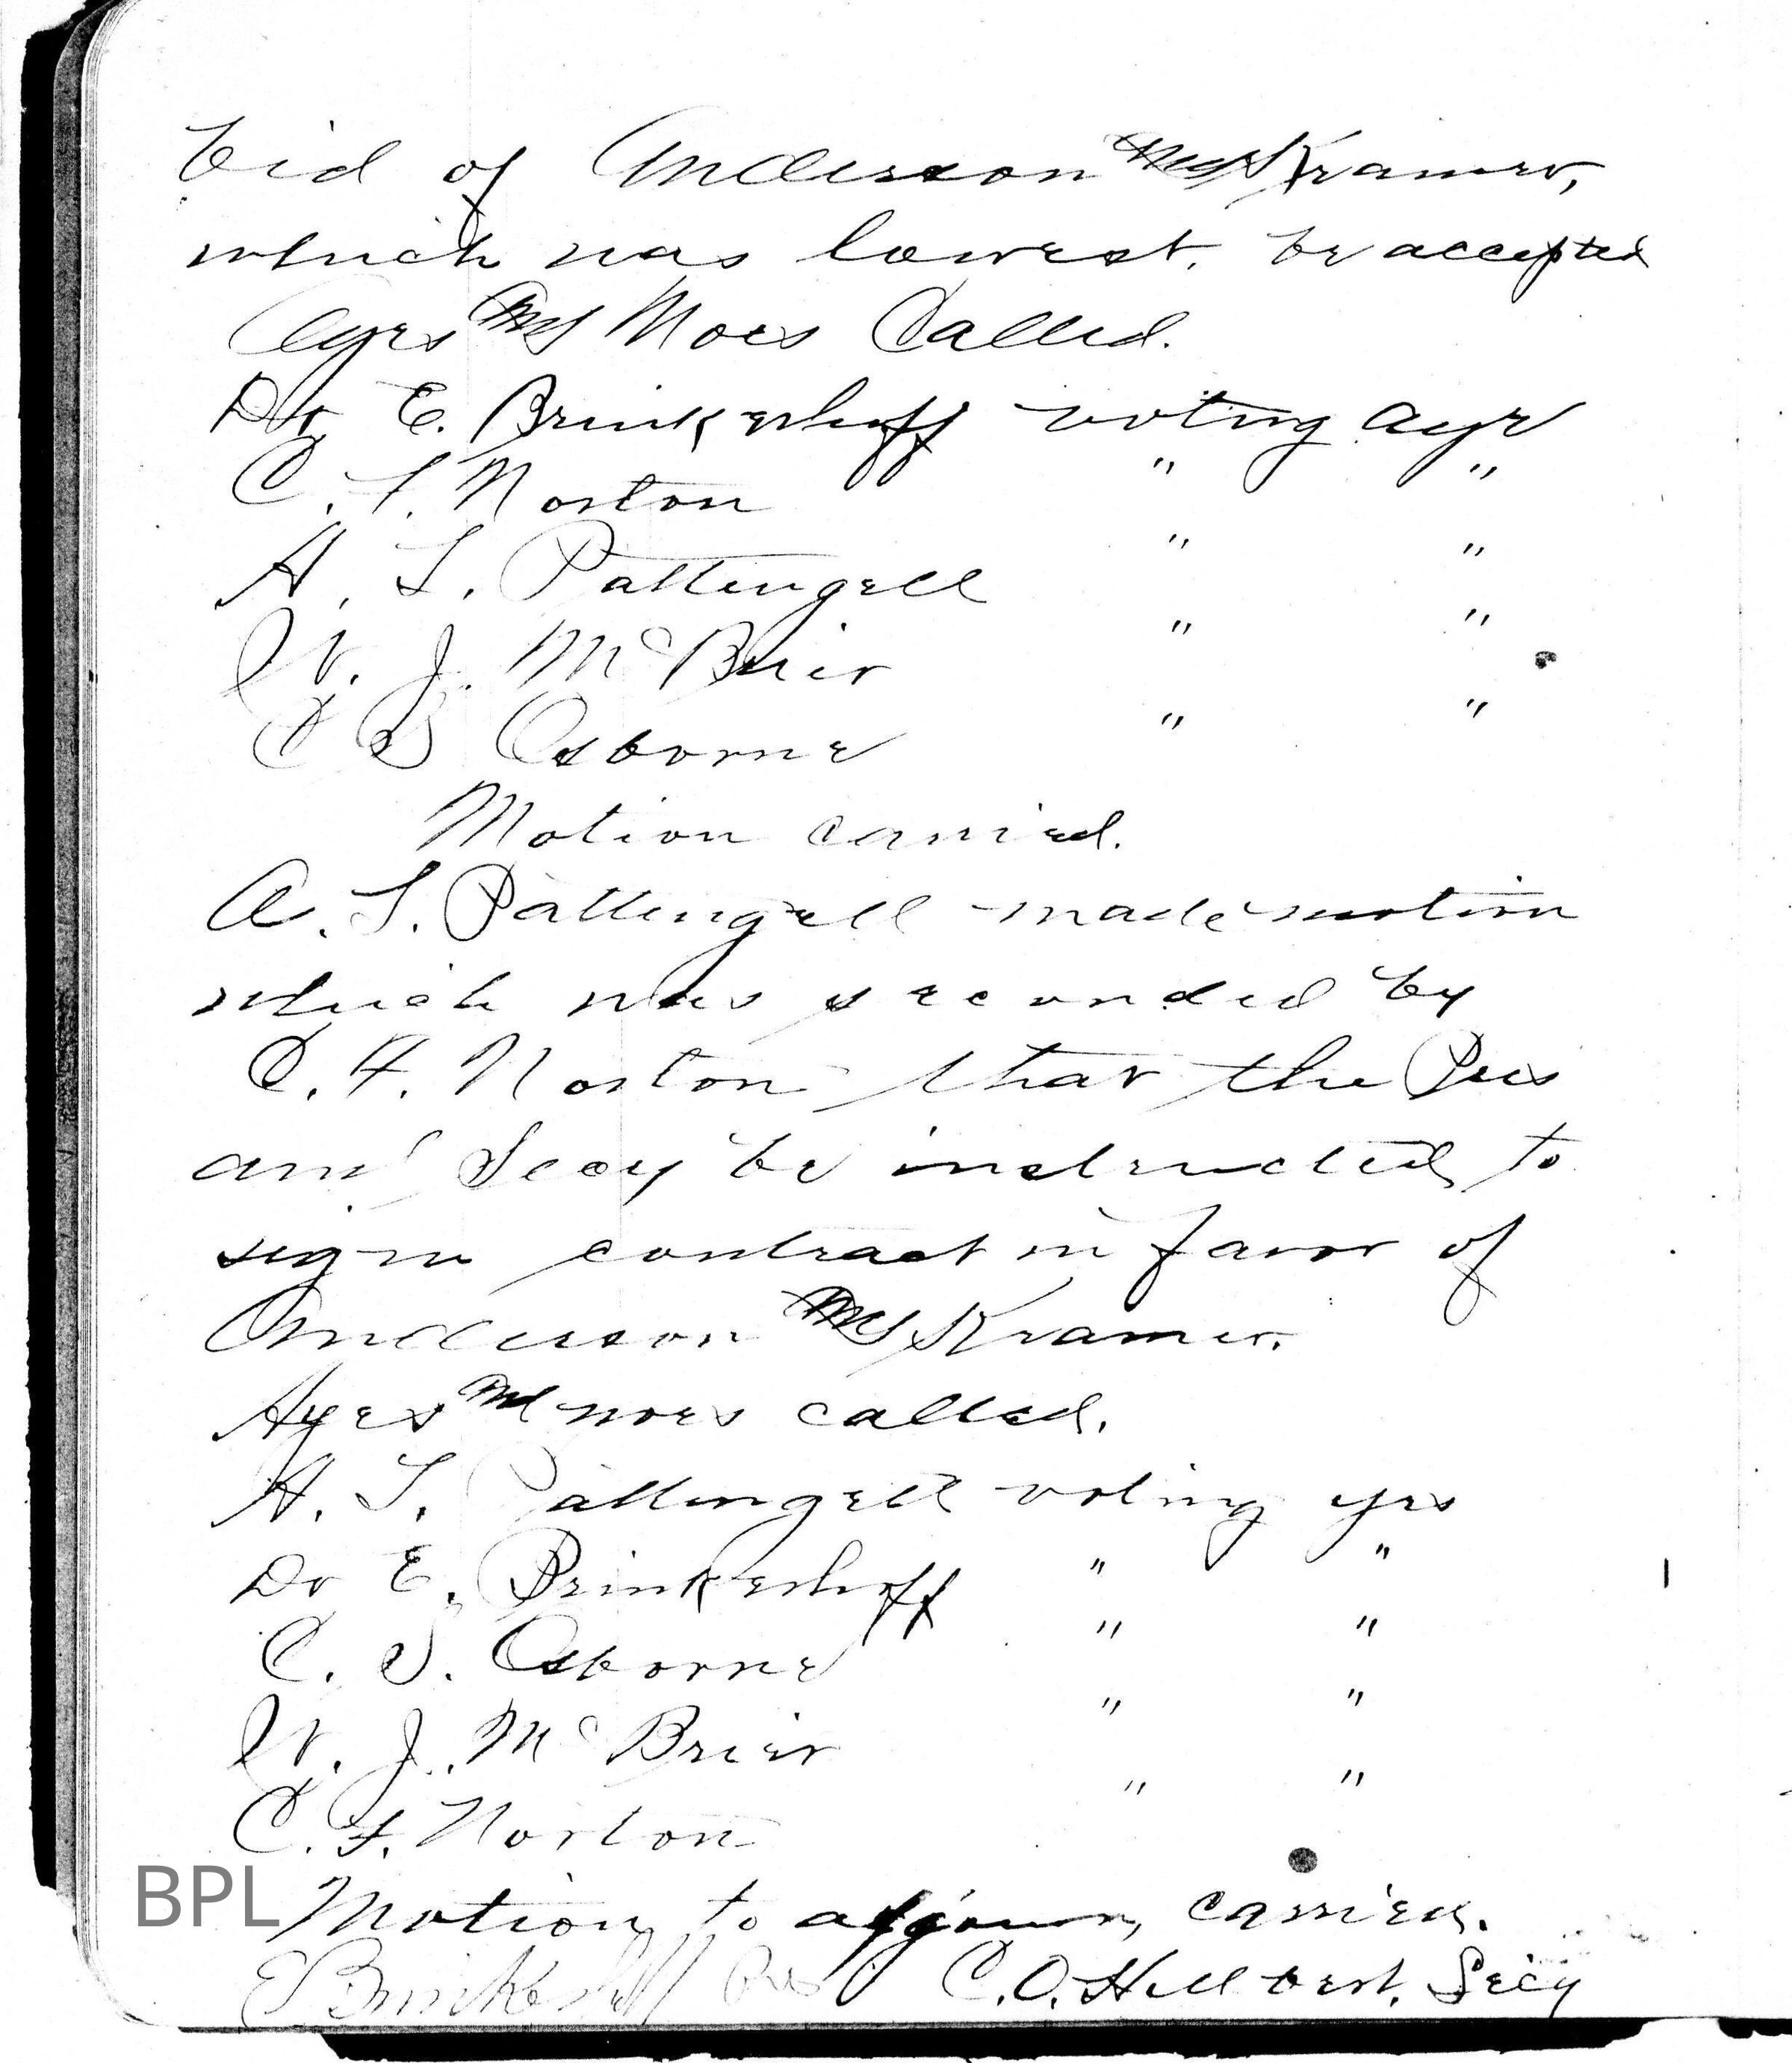 bid of Anderson and Kramer,
which was lowest, be accepted
Ayes and Noes Called.
Dr E. Brinkerhoff voting aye
C. F. Norton " "
A. S. Pattengell " "
W. J. McBrier " "
C S Osborne " "
Motion carried.
A. S. Pattengell made motion
which was seconded by
C. F. Norton that the Pres
and Secy be instructed to
sign contract in favor of
Anderson and Kramer.
Ayes and noes called.
A. S. Pattengell voting yes
Dr E. Brinkerhoff " "
C. S. Osborne " "
W. J. McBrier " "
C. F. Norton " "
Motion to adjourn, carried.
E Brinkerhoff Pres C. O. Secy
BPL